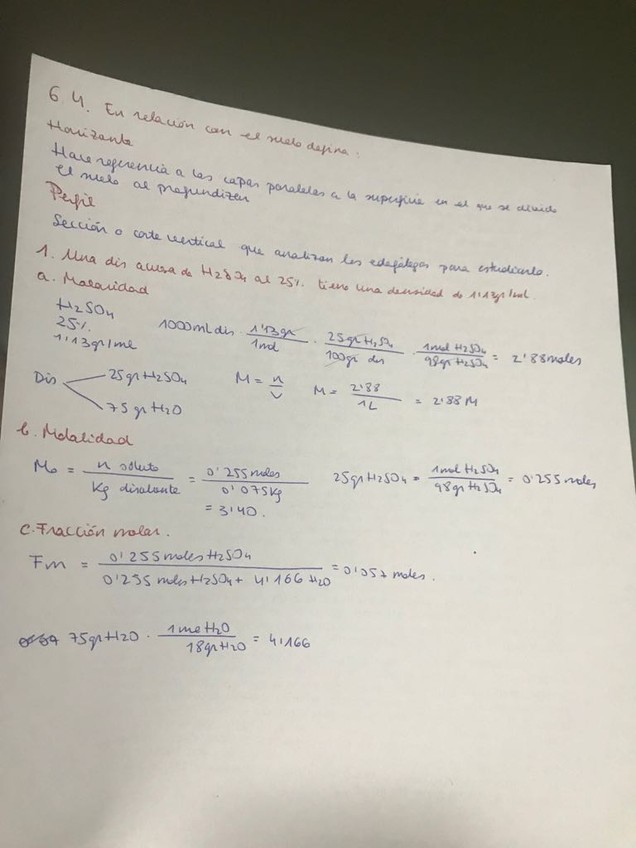 6.4. En relación con el suelo defina:
Horizonte
Hace referencia a las capas paralelas a la superficie en el que se divide
el suelo al profundizar
Perfil
Sección o corte vertical que analizan los edafólogos para estudiarlo.
1. Una dis acuosa de H2SO4 al 25%. tiene una densidad de 1'13gr/ml.
a. Molaridad
H2SO4
25%
1'13gr/ml
1000ml dis · 1'13gr / 1ml · 25gr H2SO4 / 100gr dis · 1mol H2SO4 / 98gr H2SO4 = 2'88moles
Dis
25gr H2SO4
75gr H2O
M = n / V
M = 2'88 / 1L = 2'88 M
b. Molalidad
Mo = n soluto / Kg disolvente = 0'255moles / 0'075Kg
= 3'40.
25gr H2SO4 = 1mol H2SO4 / 98gr H2SO4 = 0'255moles
c. Fracción molar.
Fm = 0'255moles H2SO4 / 0'255 moles H2SO4 + 4'166 H2O = 0'057 moles.
75gr H2O · 1mol H2O / 18gr H2O = 4'166